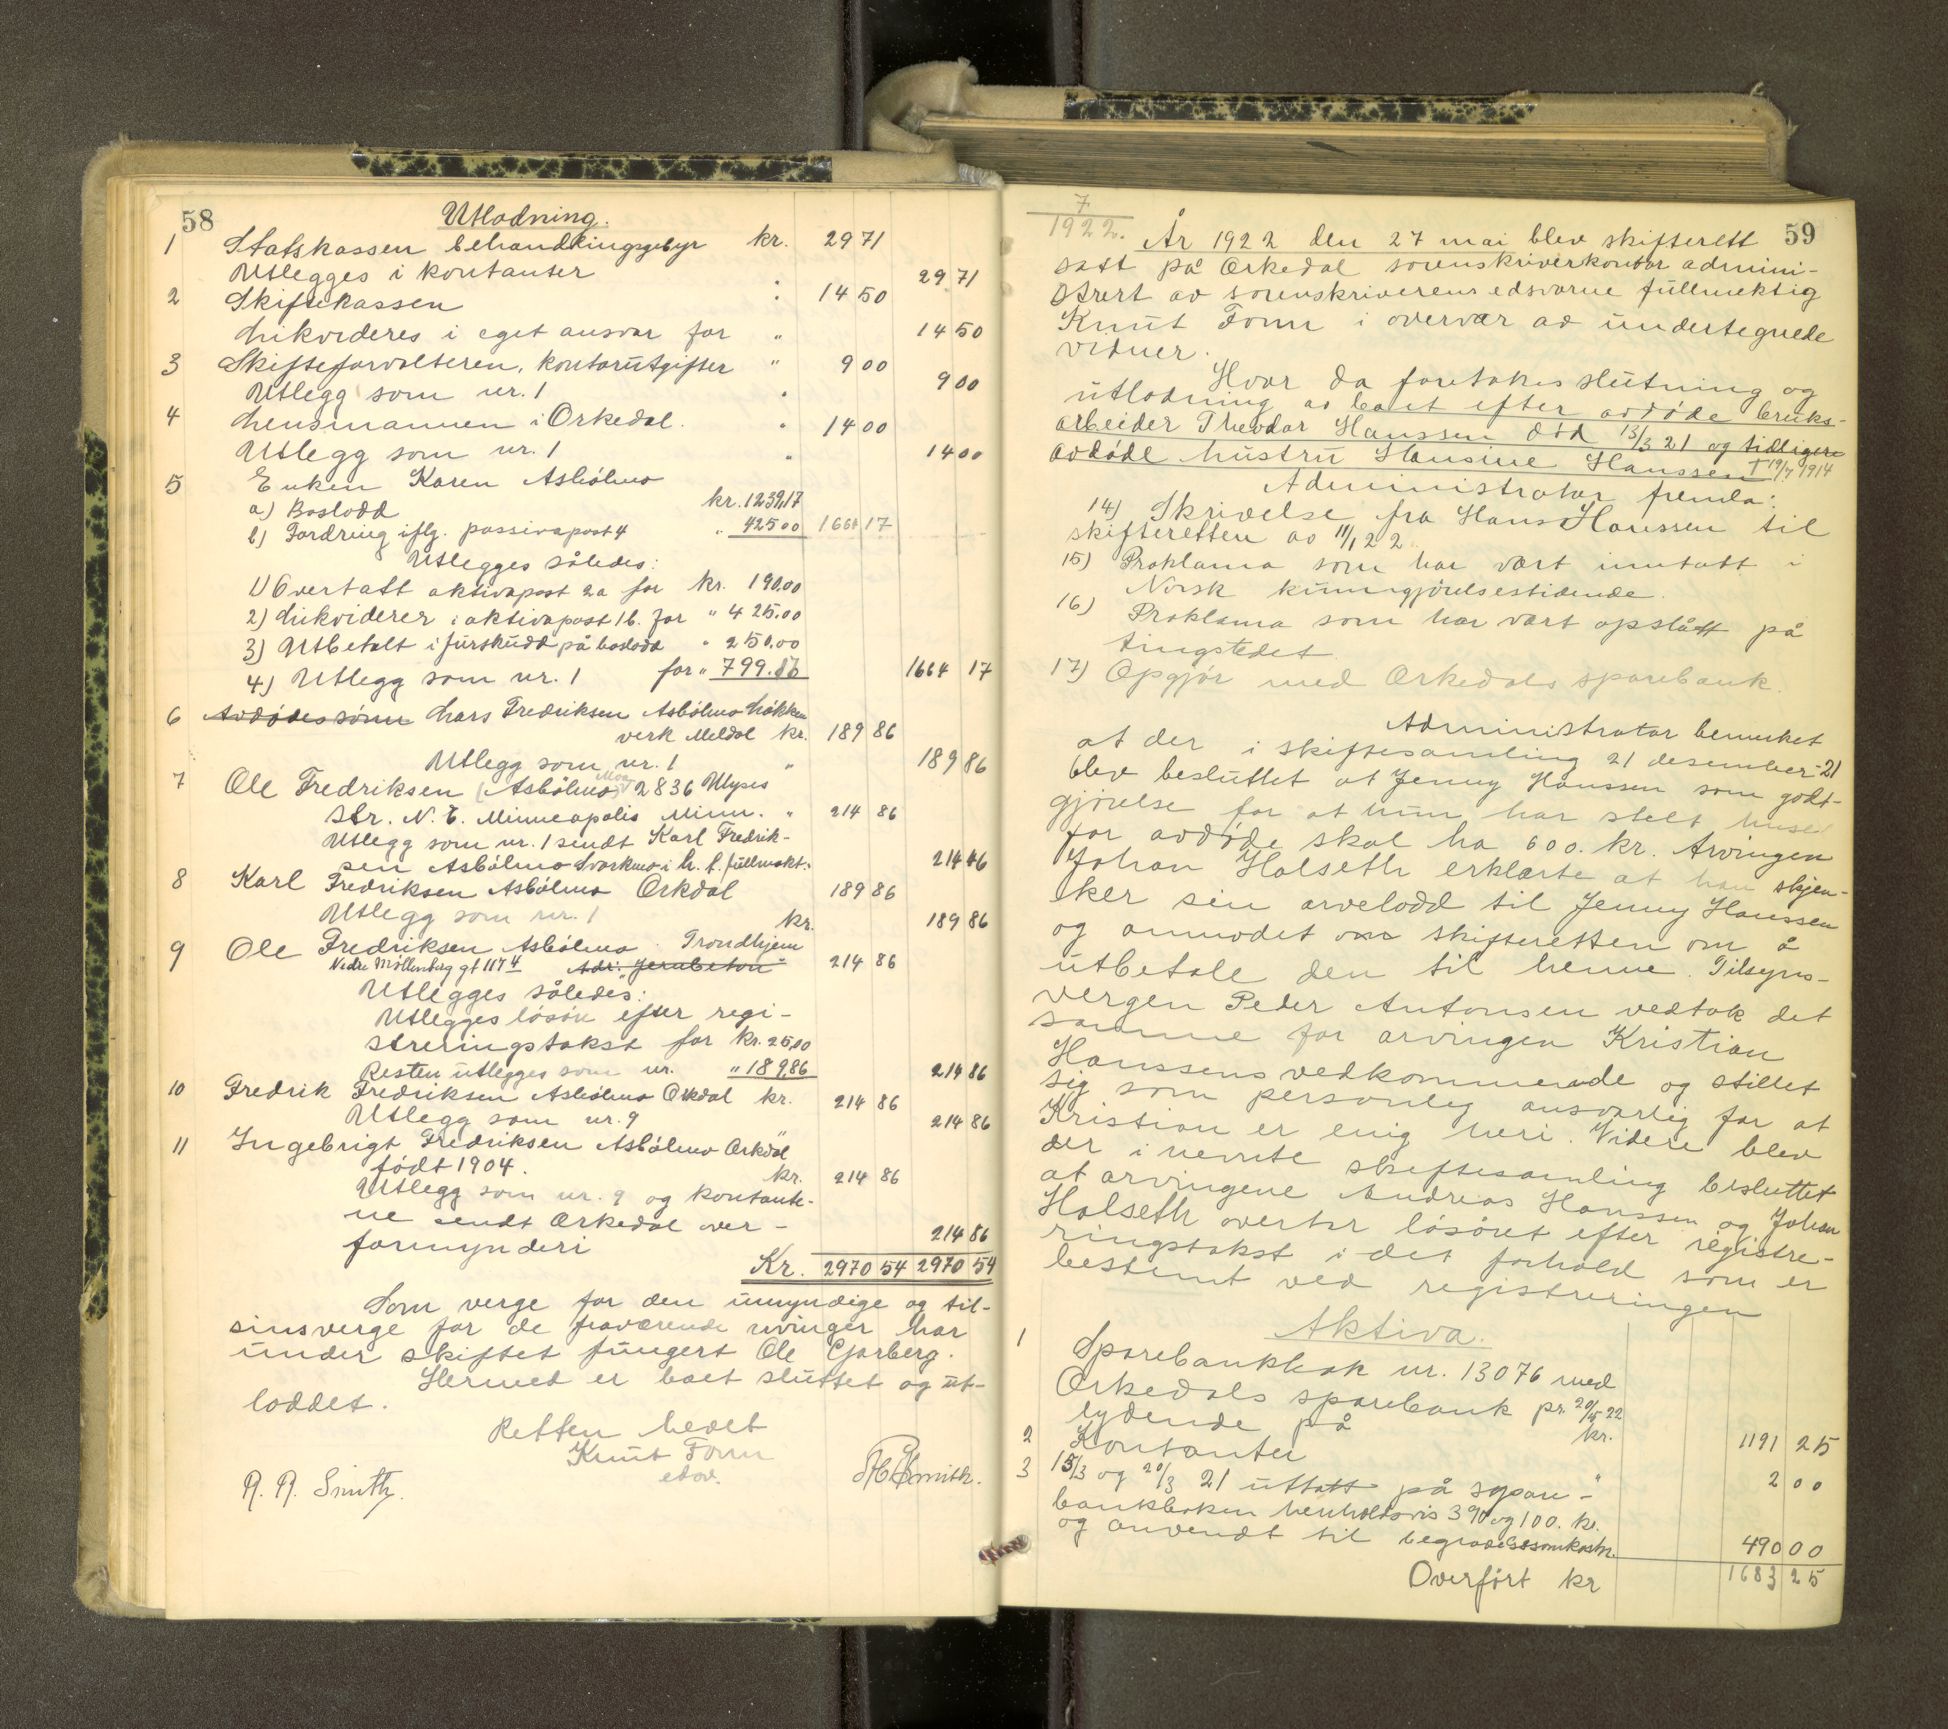 58
Utlodning.
1 Statskassen behandlingsgebyr kr. 29 71
Utlegges i kontanter " 29 71
2 Skiftekassen 14 50
Likvideres i eget ansvar for " 14 50
3 Skifteforvalteren, kontorutgifter " 9 00
Utlegg som nr. 1 " 9 00
4 Lensmannen i Orkedal. " 14 00
Utlegg som nr. 1 " 14 00
5 Enken Karen Asbölmo
a) Boslodd kr. 1239,17
b) Fordring iflg. passivapost 4 " 425 00 1664 17
Utlegges således:
1) Overtatt aktivapost 2a for kr. 190,00
2) Likviderer i aktivapost 1b. for " 425.00
3) Utbetalt i furskudd på boslodd " 250.00
4) Utlegg som nr. 1 for " 799.86 1664 17
6 Avdödes sönn Lars Fredriksen Asbölmo Lökken
verk Meldal kr. 189 86
Utlegg som nr. 1 " 189 86
7 Ole Fredriksen (Asbölmo) 2836 Ulyses
Str. N. E. Minneapolis Minn. " 214 86
Utlegg som nr. 1 sendt Karl Fredrik-
sen Asbölmo Svorkmo i h. t. fullmakt. 214 46
8 Karl Fredriksen Asbölmo Orkdal 189 86
Utlegg som nr. 1 kr. 189 86
9 Ole Fredriksen Asbölmo Trondhjem
Nedre Möllenberg gt 117 4 Adr: "Jernbeton" 214 86
Utlegges således:
Utlegges lösöre efter regi-
streringstakst for kr. 25,00
Resten utlegges som nr. " 189,86 214 86
10 Fredrik Fredriksen Asbölmo Orkdal kr. 214 86
Utlegg som nr. 9 214 86
11 Ingebrigt Fredriksen Asbölmo Orkdal
födt 1904. kr. 214 86
Utlegg som nr. 9 og kontante-
ne sendt Orkedal over-
formynderi 214 86
Kr. 2970 54 2970 54
Som verge for den umyndige og til-
sinsverge for de fraværende arvinger har
under skiftet fungert Ole Gjorberg.
Hermed er boet sluttet og ut-
loddet.
Retten hevet
Knut Fonn
edsv.
A. A. Smith.
59
7
1922.
År 1922 den 27 mai blev skifterett
satt på Orkedal sorenskriverkontor admini-
strert av sorenskriverens edsvorne fullmektig
Knut Fonn i overvær av undertegnede
vidner.
Hvor da foretokes slutning og
utlodning av boet efter avdøde bruks-
arbeider Theodor Hanssen död 13/3 21 og tidligere
avdöde hustru Hansine Hanssen † 19/7 1914
Administrator fremla:
14) Skrivelse fra Hans Hanssen til
skifteretten av 11/1 22
15) Proklama som har vært inntatt i
Norsk kunngjörelsestidende.
16) Proklama som har vært opslått på
tingstedet.
17) Opgjör med Orkedals sparebank.
Administrator bemerket
at der i skiftesamling 21 desember -21
blev besluttet at Jenny Hanssen som godt-
gjörelse for at hun har stelt huset
for avdöde skal ha 600. kr. Arvingen
Johan Holseth erklærte at han skjen-
ker sin arvelodd til Jenny Hanssen
og anmodet om skifteretten om å
utbetale den til henne. Tilsyns-
vergen Peder Antonsen vedtok det
samme for arvingen Kristian
Hanssens vedkommende og stillet
sig som personlig ansvarlig for at
Kristian er enig heri. Videre blev
der i nevnte skiftesamling besluttet
at arvingene Andreas Hanssen og Johan
Holseth overtar lösöret efter registre-
ringstakst i det forhold som er
bestemt ved registreringen
Aktiva.
1 Sparebankbok nr. 13076 med
Orkedals sparebank pr. 20/5 22
lydende på kr. 1191 25
2 Kontanter " 2 00
3 15/3 og 20/3 21 uttatt på spare-
bankboken henholdsvis 390 og 100. kr.
og anvendt til begravelsesomkostn. 490 00
Overført kr 1683 25